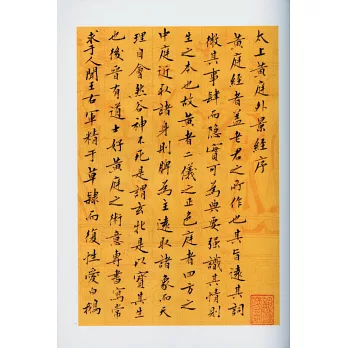 太上黃庭外景經序
黃庭經者蓋老君之所作也其旨遠其詞
微其事肆而隱實可為典要強識其情則
生之本也故黃者二儀之正色庭者四方之
中庭近取諸身則脾為主遠取諸象而天
理自會然谷神不死是謂玄牝是以寶其生
也後晉有道士好黃庭之術意專書寫常
求于人聞王右軍精于草隸而復性愛白鵝